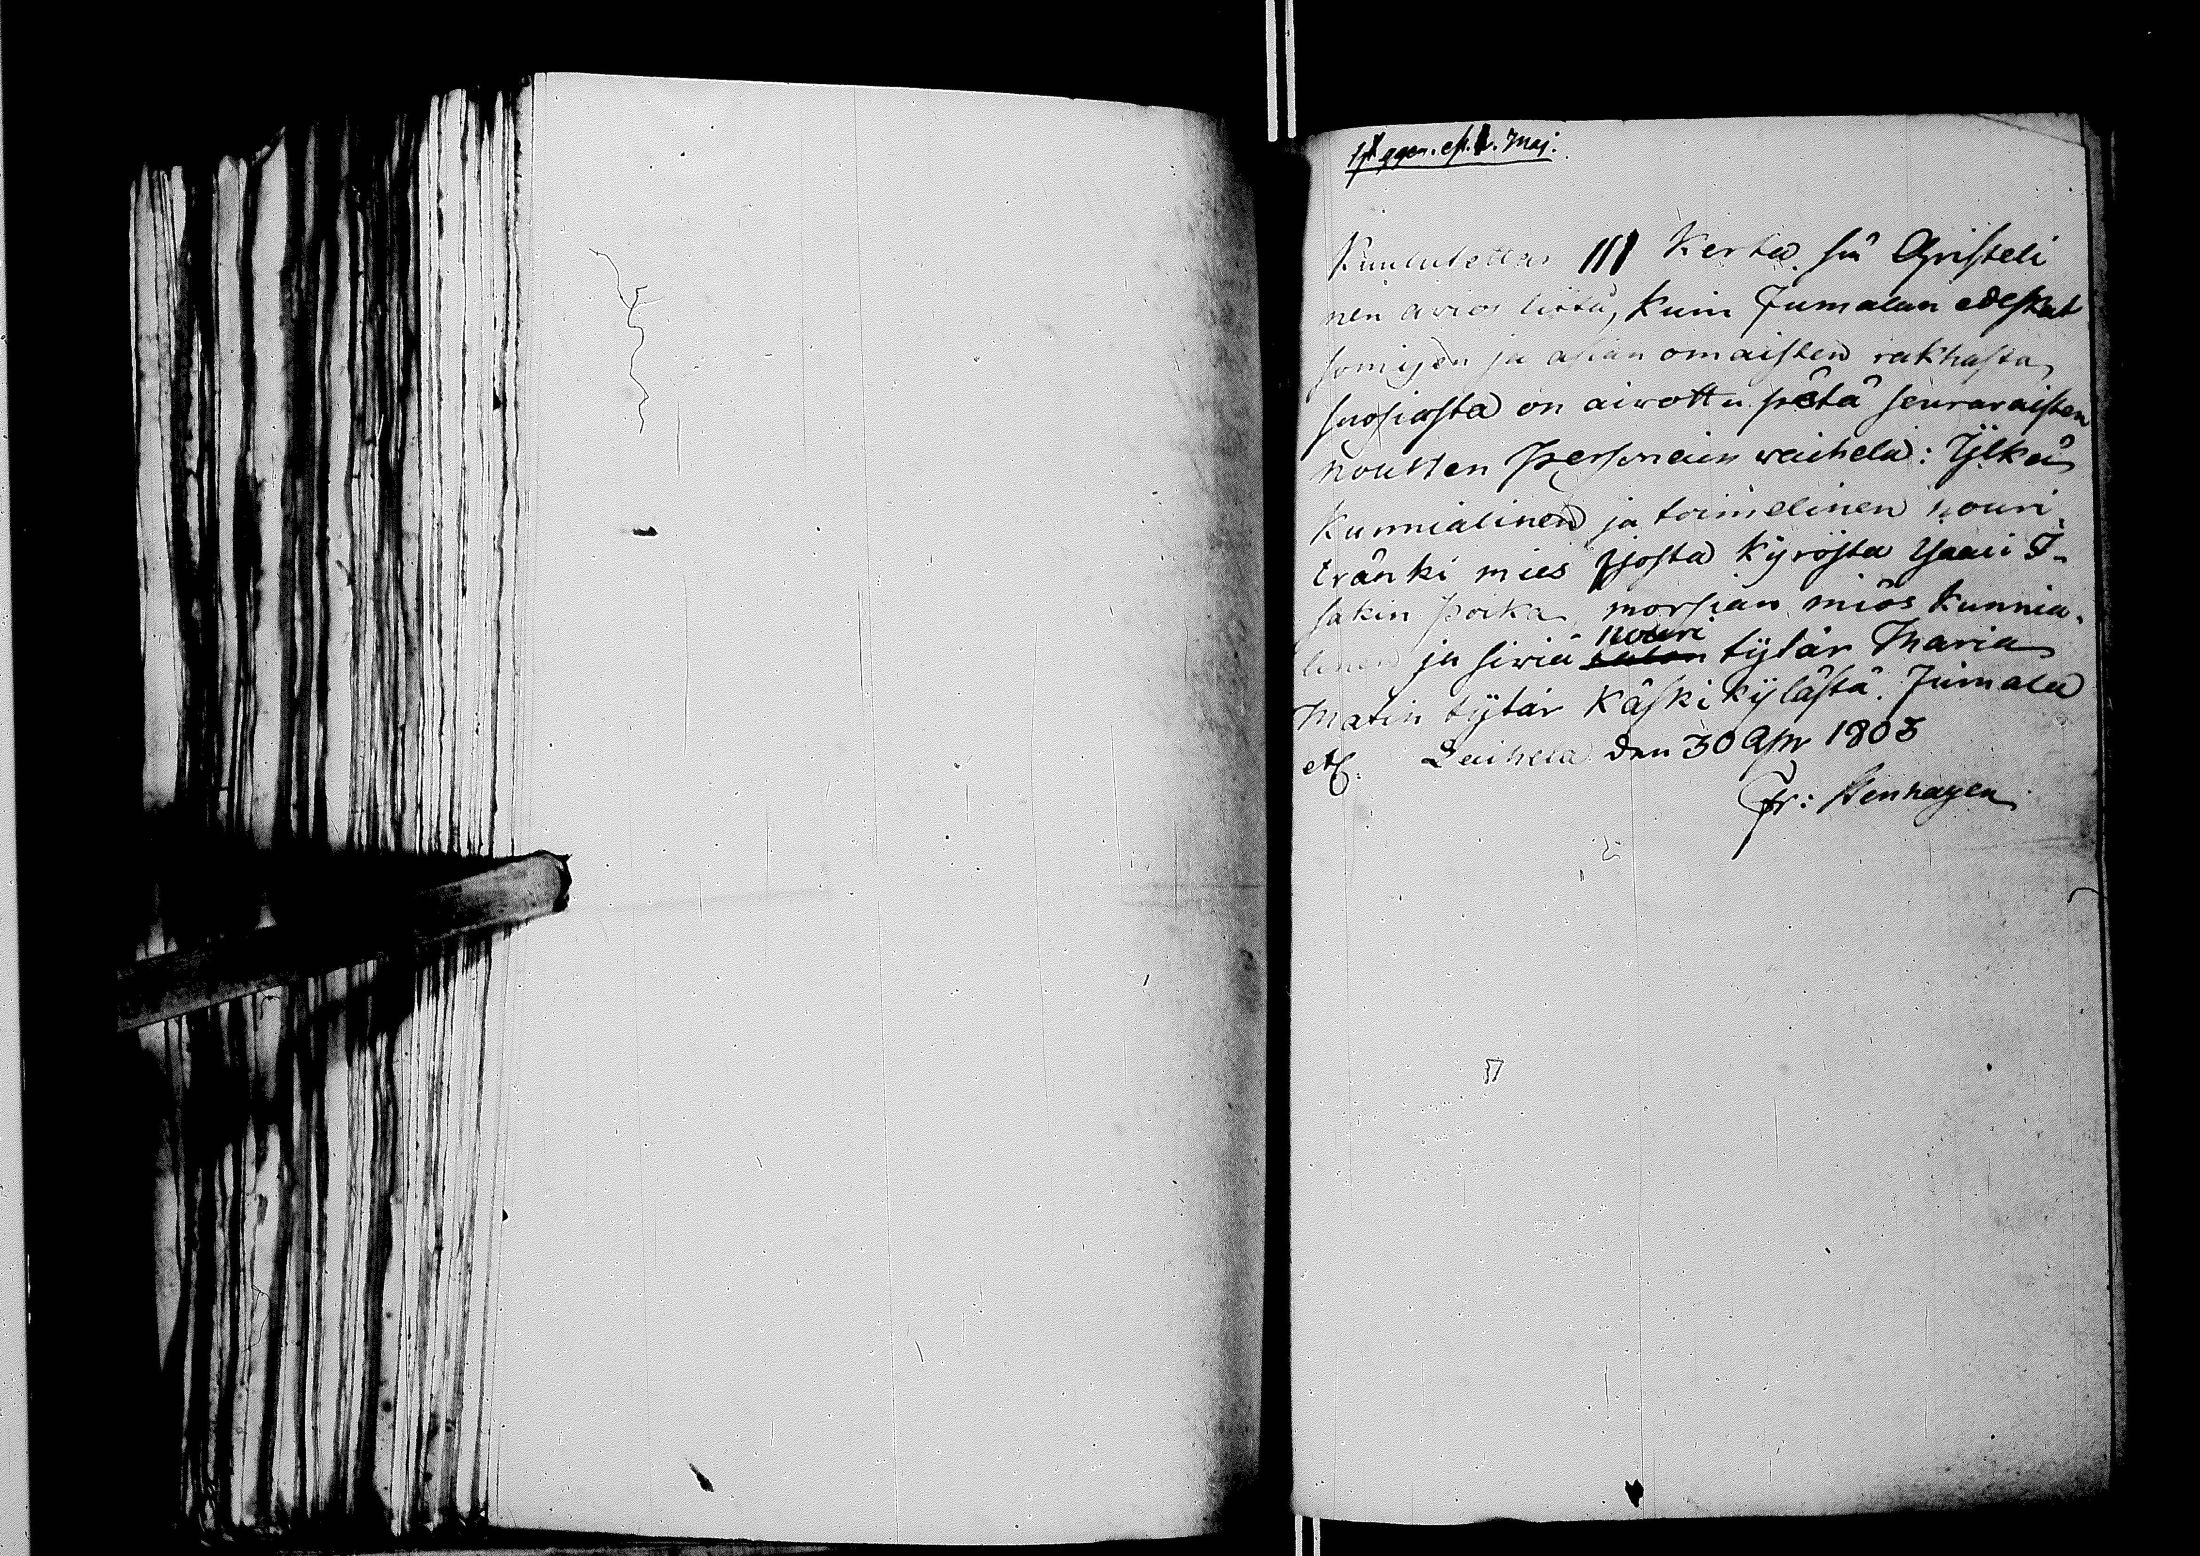 Kuulutettan III Kerta siä Christeli
nen avios liitto, kuin Jumalan edeskat
somisen ja asian omaisten rakhasta
suosiosta on aiwottu pätä seurawaisten
noutten Personein waihela: Ylkä
kunnialinen ja toimelinen nouri
tränki mies Isosta Kyrösta Isaaci I-
sakin poika, morsian miös kunnia-
linen ja siwiä nouri tytär Maria
Matin tytär Käskikylästä. Jumala
etc. Laihela den 30 Apr 1803
Fr: Stenhagen